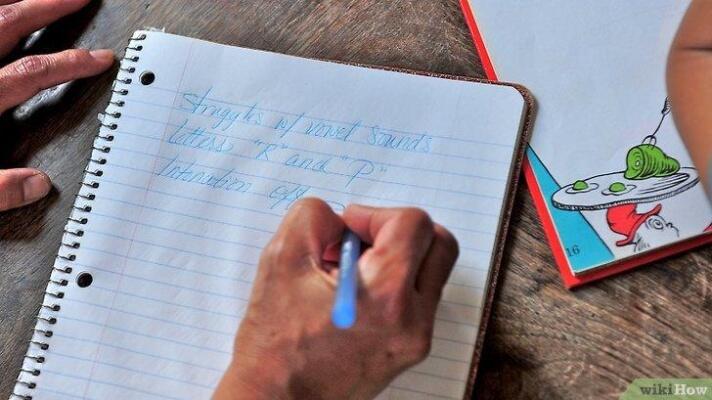 Struggles w/ vowel sounds
letters "R" and "P"
Intonation off
16
wikiHow